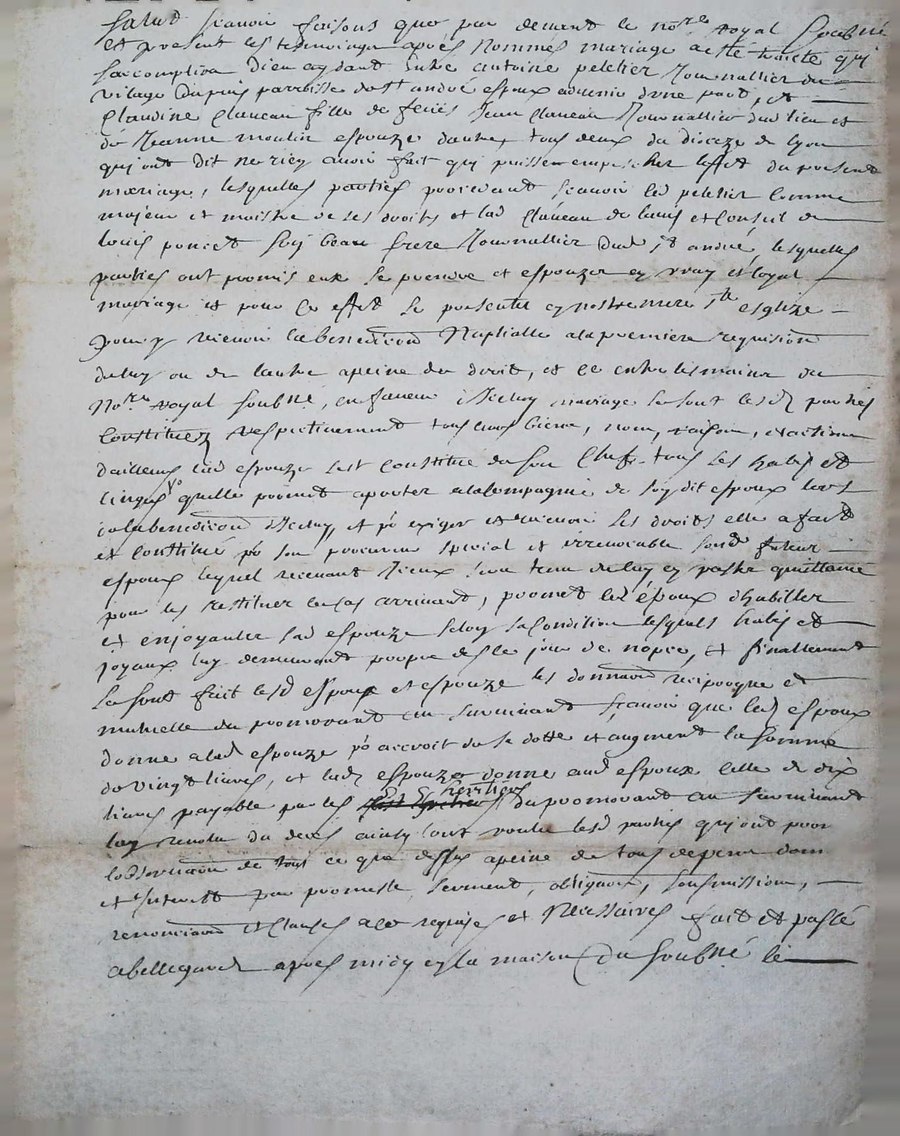 salut scavoir faisons que par devant le nore royal soubné
et present les temoins apres nommes mariage a esté traicté qui
saccomplira Dieu aydant Entre antoine peletier Journallier du
village Dupuis parroisse de st andré espoux advenir dune part, et
Claudine Claveau fille de feus Jean Claveau Journallier dud lieu et
de Jeanne moulin espouze dautre, tous deux du diocèze de Lyon
qui ont dit ne rien avoir fait qui puisse empescher leffet du present
mariage, lesquelles parties procedant scavoir led peletier comme
majeur et maistre de ses droits et lad Claveau de lavis et Conseil de
louis poncet son beau frere Journallier Dud st andré, lesquelles
parties ont promis eux se prendre et espouzer en vray et loyal
mariage et pour ce effet se presenter en nostre mere ste esglize
pour y recevoir la benediction Nuptialle a la premiere requision
de luy ou de lautre a peine de droit, et ce entre les mains du
Nore royal soubné, en faveur diceluy mariage se sont lesd parties
Constituez respectivement tous leurs biens, noms, raisons, et actions
dailleurs lad espouze sest constitué de son Chef tous ses habis et
linges quelle promet aporter a la Compagnie de son dit espoux lors
la benediction diceluy, et pr exiger et recevoir ses droits elle a fait
et Constitué pr son procureur special et irrevocable sond futur
espoux lequel recevant Iceux sera tenu de luy en passer quittance
pour les restituer le cas arrivant, promet led époux dhabiller
et enjoyauter lad espouze selon sa Condition lesquels habis et
joyaux luy demeurant propre des le jour de nopce, et finallement
se sont fait lesd espoux et espouze les donnaons reciproque et
mutuelle du premourant au survivant scavoir que led espoux
donne a lad espouze pr accroit de sa dotte et augment la somme
de vingt livres, et lad espouze donne aud espoux celle de dix
livres payable par les heritiers du premourant au survivant
lan revolu du deces ainsy lont voulu lesd parties qui ont pour
lobservation de tous ce que dessus a peine de tous depens dom
et Interests par promesse, serment, obligaon, soubmission,
renonciaon et Clauses a ce requises et Necessaires fait et passé
a bellegarde apres midy en la maison du soubné le